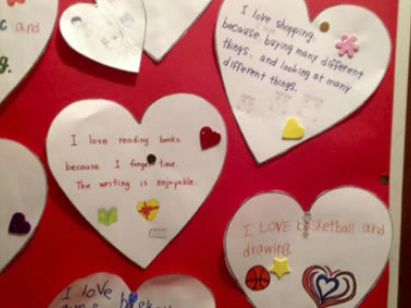 c and
g.
I love shopping,
because buying many different
things, and looking at many
different things.
I love reading books
because I forget time.
The writing is enjoyable.
I LOVE basketball and
drawing.
I love